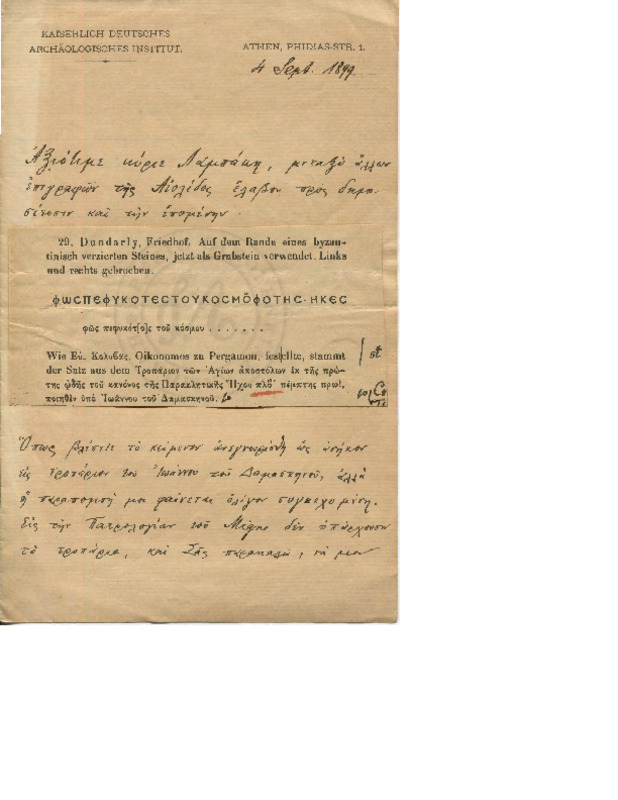 KAISERLICH DEUTSCHES
ARCHÄOLOGISCHES INSTITUT.
ATHEN, PHIDIAS-STR. 1.
4 Sept. 1899
Ἀξιότιμε κύριε Λαμπάκη, μεταξὺ ἄλλων
ἐπιγραφῶν τῆς Αἰολίδος ἔλαβον πρὸς δημο-
σίευσιν καὶ τὴν ἑπομένην.
29. Dundarly, Friedhof. Auf dem Rande eines byzan-
tinisch verzierten Steines, jetzt als Grabstein verwendet. Links
und rechts gebrochen.
ΦΩΣΠΕΦΥΚΟΤΕΣΤΟΥΚΟΣΜΟΦΟΤΗΣ·ΗΚΕΣ
φῶς πεφυκότ[ο]ς τοῦ κόσμου . . . . . . .
Wie Εὐ. Κολυβᾶς, Oikonomos zu Pergamon, festellte, stammt
der Satz aus dem Τροπάριον τῶν Ἁγίων ἀποστόλων ἐκ τῆς πρώ-
της ᾠδῆς τοῦ κανόνος τῆς Παρακλητικῆς Ἤχου πλβ′ πέμπτης πρωΐ,
ποιηθὲν ὑπὸ Ἰωάννου τοῦ Δαμασκηνοῦ.
st
Ὅπως βλέπετε τὸ κείμενον ἀνεγνωρίσθη ὡς ἀνῆκον
εἰς τροπάριον τοῦ Ἰωάννου τοῦ Δαμασκηνοῦ, ἀλλὰ
ἡ παραπομπή μοι φαίνεται ὀλίγον συγκεχυμένη.
Εἰς τὴν Πατρολογίαν τοῦ Migne δὲν ὑπάρχουσι
τὰ τροπάρια, καὶ Σᾶς παρακαλῶ, νά μοι